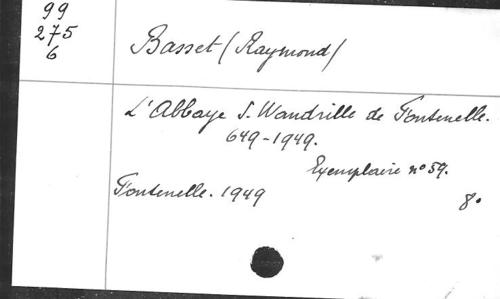 99
275
6
Basset (Raymond)
L'Abbaye S. Wandrille de Fontenelle.
649-1949.
Exemplaire n° 59.
Fontenelle. 1949
8°